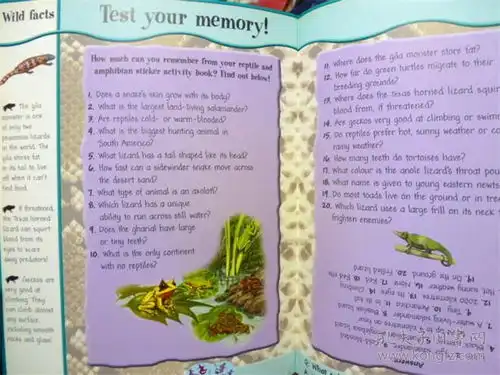 Wild facts
The gila
monster is one
of only two
poisonous lizards
in the world. The
gila stores fat
in its tail to live
off when it can't
find food.
If threatened,
the Texas horned
lizard can squirt
blood from its
eyes to scare
away predators!
Geckos are
very good at
climbing. They
can climb almost
any surface,
including smooth
rocks and glass!
Test your memory!
How much can you remember from your reptile and
amphibian sticker activity book? Find out below!
1. Does a snake's skin grow with its body?
2. What is the largest land-living salamander?
3. Are reptiles cold- or warm-blooded?
4. What is the biggest hunting animal in
South America?
5. What lizard has a tail shaped like its head?
6. How fast can a sidewinder snake move across
the desert sand?
7. What type of animal is an axolotl?
8. Which lizard has a unique
ability to run across still water?
9. Does the gharial have large
or tiny teeth?
10. What is the only continent
with no reptiles?
11. Where does the gila monster store fat?
12. How far do green turtles migrate to their
breeding grounds?
13. Where does the Texas horned lizard squirt
blood from, if threatened?
14. Are geckos very good at climbing or swimm
15. Do reptiles prefer hot, sunny weather or co
rainy weather?
16. How many teeth do tortoises have?
17. What colour is the anole lizard's throat pou
18. What name is given to young eastern newts
19. Do most toads live on the ground or in tree
20. Which lizard uses a large frill on its neck
frighten enemies?
19. On the ground 20. Frilled lizard
Answers
www.kongfz.com